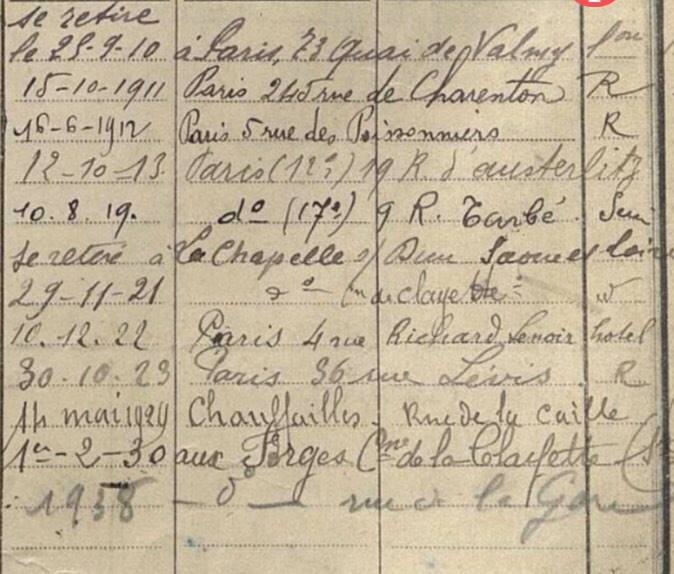 se retire
le 25-9-10 à Paris, 73 Quai de Valmy
15-10-1911 Paris 245 rue de Charenton R
16-6-1912 Paris 5 rue des Poissonniers R
12-10-13 Paris (12e) 19 R. d'austerlitz
10.8.19. do (17e) 9 R. Tarbé.
se retire à La Chapelle s/ Dun Saone et loire
29-11-21 do de Clayette
10.12.22 Paris 4 rue Richard Lenoir hotel
30.10.23 Paris 36 rue Lévis. R
14 mai 1929 Chauffailles. Rue de la Caille
1er-2-30 aux Forges Cne de la Clayette
1938 - do - rue de la Gare